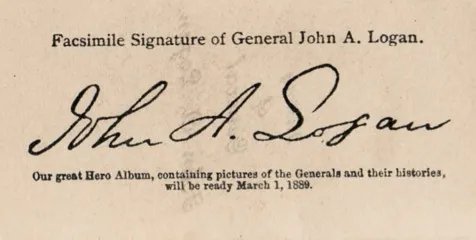 Facsimile Signature of General John A. Logan.
John A. Logan
Our great Hero Album, containing pictures of the Generals and their histories,
will be ready March 1, 1889.